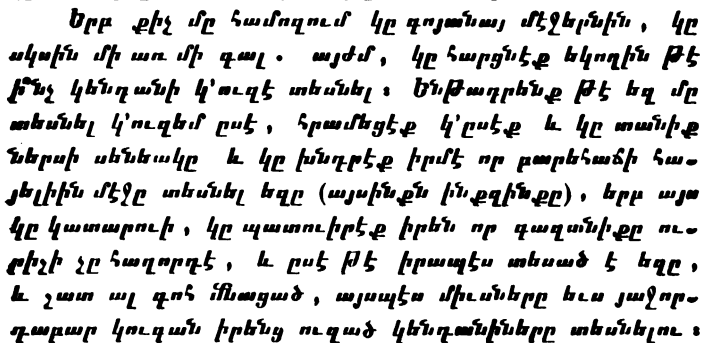 Երբ քիչ մը համոզում կը գոյանայ մէջերնին, կը
սկսին մի առ մի գալ. այժմ, կը հարցնէք եկողին թէ
ի՞նչ կենդանի կ'ուզէ տեսնել։ Ենթադրենք թէ եզ մը
տեսնել կ'ուզեմ ըսէ, հրամեցէք կ'ըսէք և կը տանիք
ներսի սենեակը և կը խնդրէք իրմէ որ բարեհաճի հա-
յելիին մէջը տեսնել եզը (այսինքն ինքզինքը), երբ այս
կը կատարուի, կը պատուիրէք իրեն որ գազանիքը ու-
րիշի չը հաղորդէ, և ըսէ թէ իրապէս տեսած է եզը,
և շատ ալ գոհ մնացած, այսպէս միւսները ևս յաջոր-
դաբար կուգան իրենց ուզած կենդանիները տեսնելու։